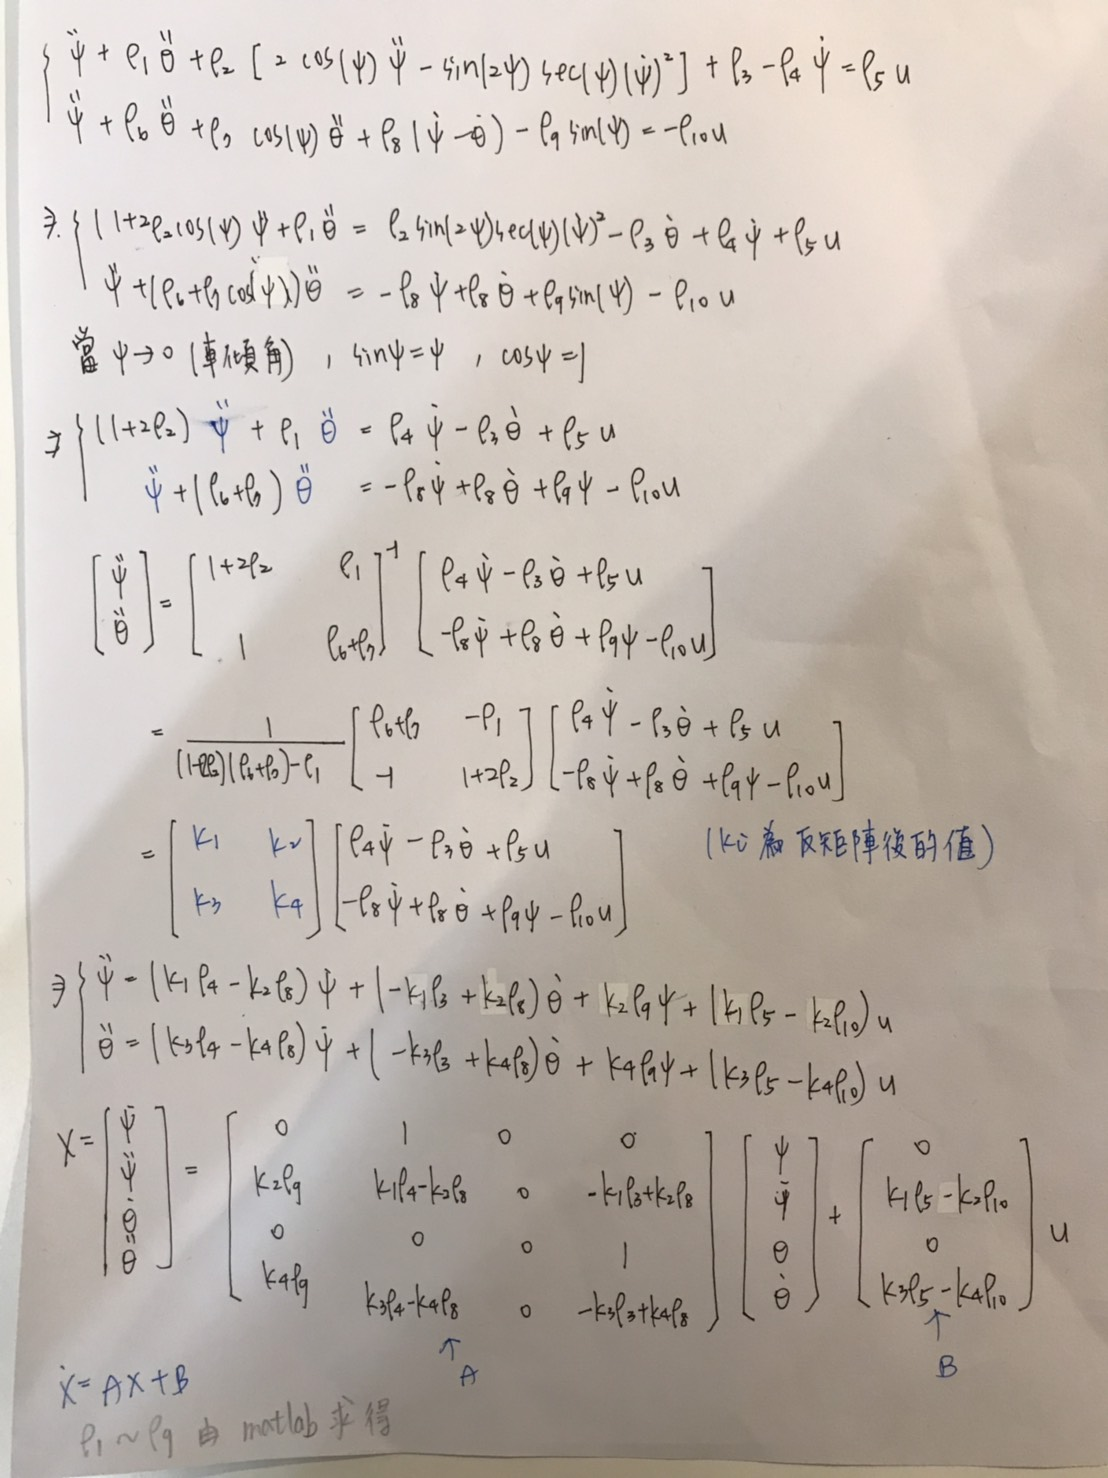 ψ̈ + ρ₁ θ̈ + ρ₂ [ 2 cos(ψ) ψ̈ - sin(2ψ) sec(ψ) (ψ̇)² ] + ρ₃ - ρ₄ ψ̇ = ρ₅ u
ψ̈ + ρ₆ θ̈ + ρ₇ cos(ψ) θ̈ + ρ₈ (ψ̇ - θ̇) - ρ₉ sin(ψ) = -ρ₁₀u
⇒ { (1+2ρ₂cos(ψ) ψ̈ + ρ₁ θ̈ = ρ₂ sin(2ψ)sec(ψ)(ψ̇)² - ρ₃ θ̇ + ρ₄ ψ̇ + ρ₅ u
ψ̈ + (ρ₆+ρ₇ cos(ψ))θ̈ = -ρ₈ ψ̇ + ρ₈ θ̇ + ρ₉ sin(ψ) - ρ₁₀ u
當 ψ→0 (車傾角) , sinψ=ψ , cosψ=1
⇒ { (1+2ρ₂) ψ̈ + ρ₁ θ̈ = ρ₄ ψ̇ - ρ₃ θ̇ + ρ₅ u
ψ̈ + (ρ₆+ρ₇) θ̈ = -ρ₈ψ̇ + ρ₈ θ̇ + ρ₉ψ - ρ₁₀u
[ψ̈ θ̈] = [1+2ρ₂ ρ₁
1 ρ₆+ρ₇]⁻¹ [ρ₄ ψ̇ - ρ₃ θ̇ + ρ₅ u
-ρ₈ψ̇ + ρ₈ θ̇ + ρ₉ψ - ρ₁₀u]
= 1/((1+2ρ₂)(ρ₆+ρ₇)-ρ₁) [ρ₆+ρ₇ -ρ₁
-1 1+2ρ₂] [ρ₄ ψ̇ - ρ₃ θ̇ + ρ₅ u
-ρ₈ψ̇ + ρ₈ θ̇ + ρ₉ψ - ρ₁₀u]
= [k₁ k₂
k₃ k₄] [ρ₄ψ̇ - ρ₃θ̇ + ρ₅u
-ρ₈ψ̇ + ρ₈ θ̇ + ρ₉ψ - ρ₁₀u]
(ki 為 反矩陣後的值)
⇒ { ψ̈ = (k₁ρ₄ - k₂ρ₈) ψ̇ + (-k₁ρ₃ + k₂ρ₈) θ̇ + k₂ρ₉ψ + (k₁ρ₅ - k₂ρ₁₀)u
θ̈ = (k₃ρ₄ - k₄ρ₈) ψ̇ + (-k₃ρ₃ + k₄ρ₈) θ̇ + k₄ρ₉ψ + (k₃ρ₅ - k₄ρ₁₀) u
X = [ψ̇ ψ̈ θ̇ θ̈] = [0 1 0 0
k₂ρ₉ k₁ρ₄-k₂ρ₈ 0 -k₁ρ₃+k₂ρ₈
0 0 0 1
k₄ρ₉ k₃ρ₄-k₄ρ₈ 0 -k₃ρ₃+k₄ρ₈] [ψ ψ̇ θ θ̇] + [0
k₁ρ₅-k₂ρ₁₀
0
k₃ρ₅-k₄ρ₁₀] u
↑ A
↑ B
ẋ = AX + B
ρ₁ ~ ρ₉ 由 matlab 求得